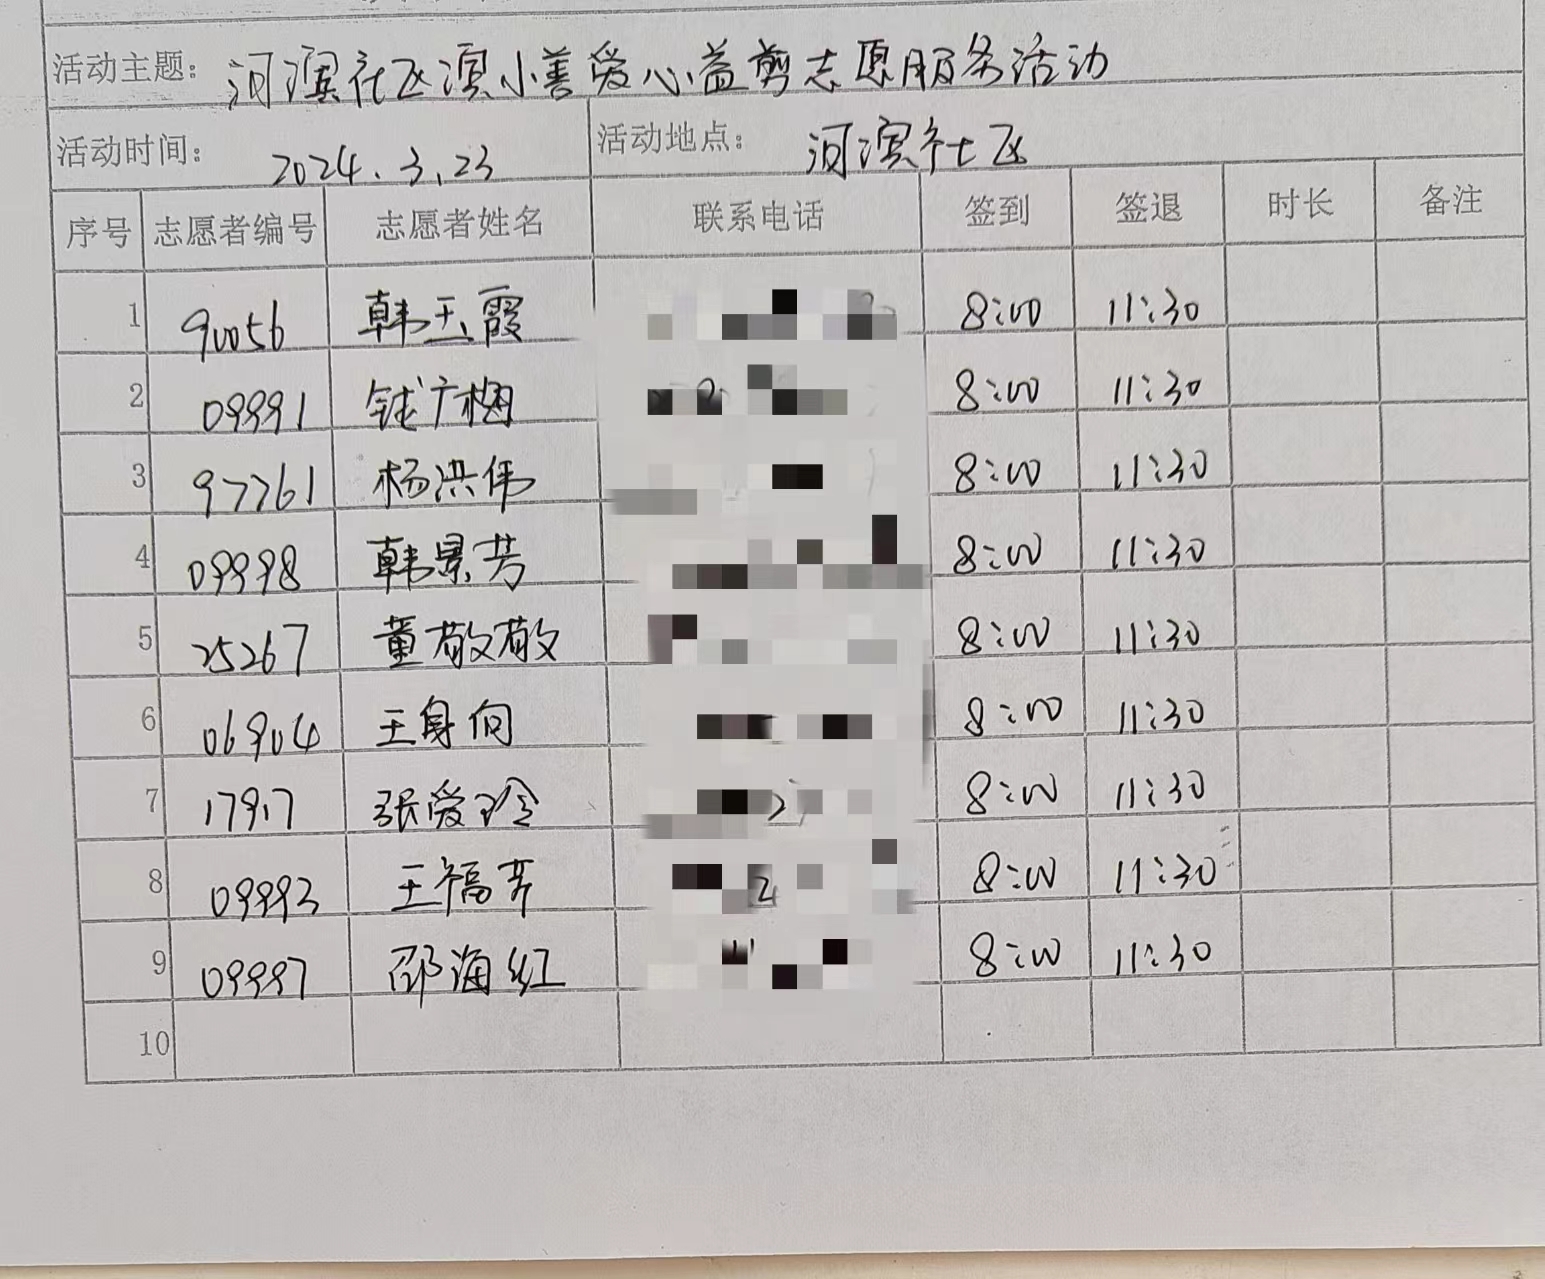 活动主题：河滨社区滨小善爱心益剪志愿服务活动
活动时间：2024.3.23 活动地点：河滨社区
序号 志愿者编号 志愿者姓名 联系电话 签到 签退 时长 备注
1 90056 韩玉霞 8:00 11:30
2 09991 钱广梅 8:00 11:30
3 97761 杨洪伟 8:00 11:30
4 09998 韩景芳 8:00 11:30
5 25267 董敬敬 8:00 11:30
6 06904 王身向 8:00 11:30
7 17917 张爱玲 8:00 11:30
8 09993 王福芹 8:00 11:30
9 09997 邵海红 8:00 11:30
10